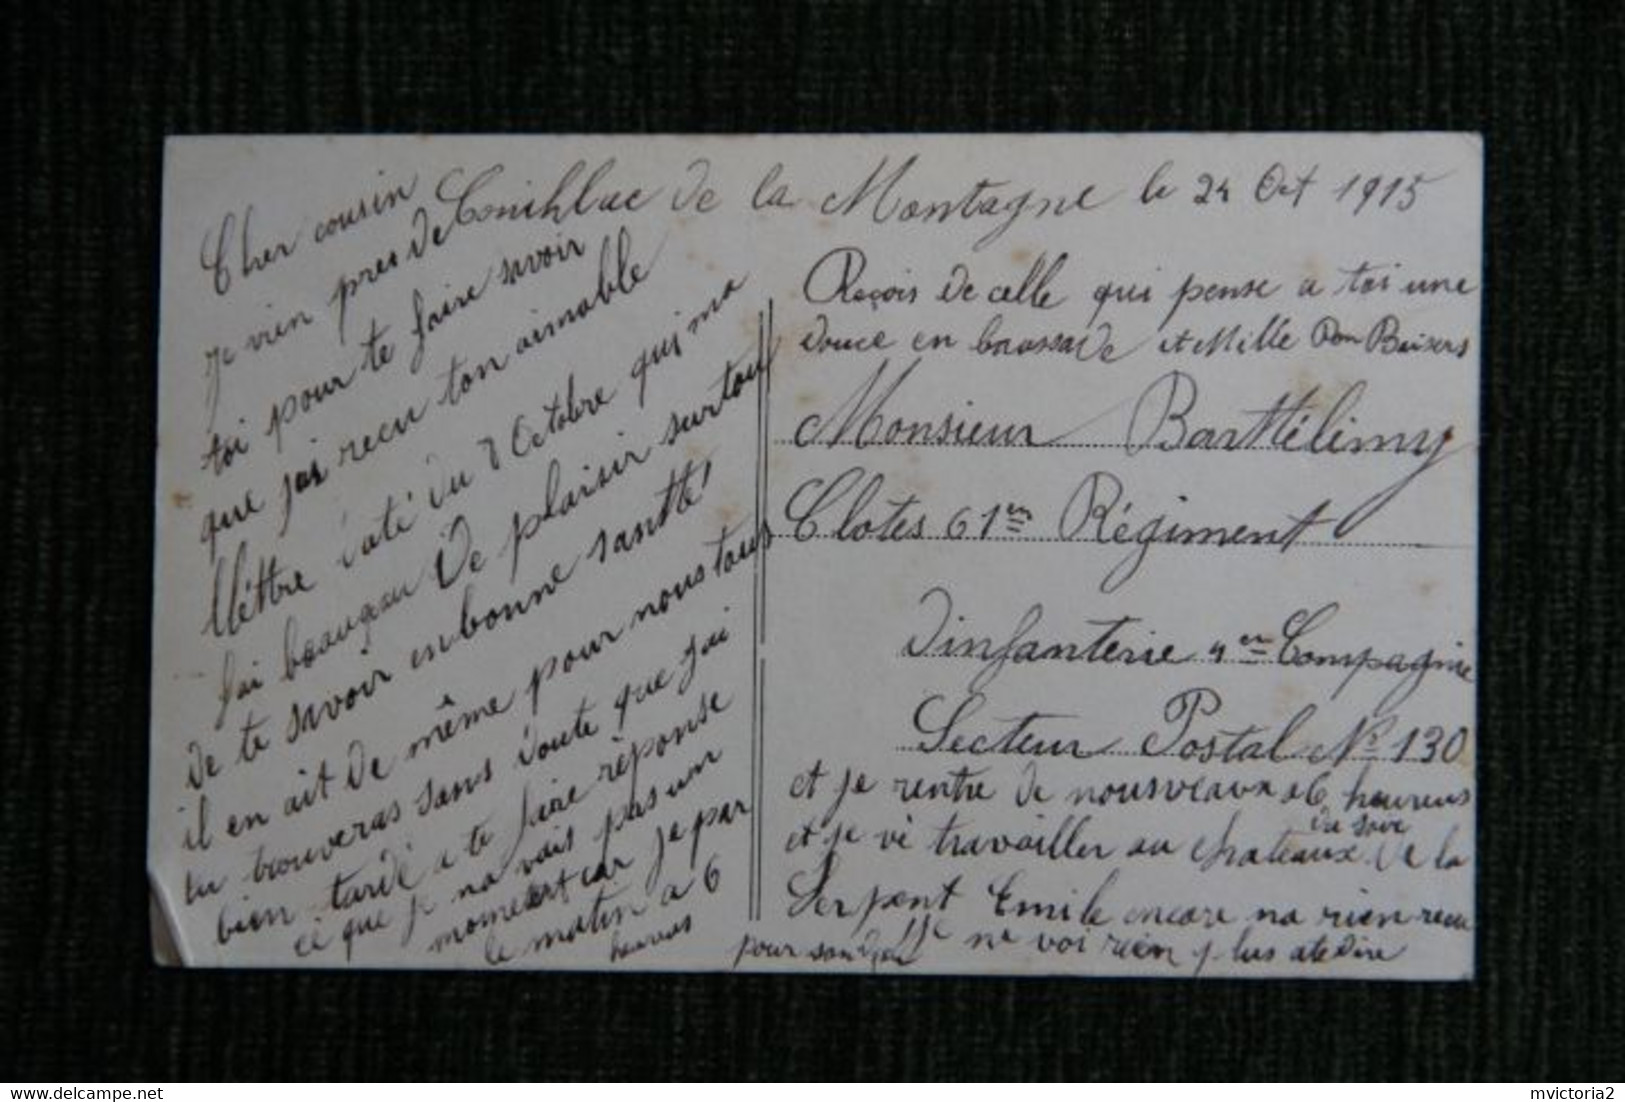 Conihlac de la Montagne le 24 Oct 1915
Cher cousin
Je vien pres de
toi pour te faire savoir
que jai recu ton aimable
lléttre daté du 7 Octobre qui ma
fai beaugau de plaisir surtou
de te savoir en bonne santté
il en ait de même pour nous tous
tu trouveras sans doute que jai
bien tardé a te faire réponse
cé que je na vais pas un
moment car je par
le matin a 6
heures
Reçois de celle qui pense a toi une
douce en brassade et Mille Bon Baisers
Monsieur Barthélimy
Clotes 61em Régiment
Dinfanterie 4em Compagnie
Secteur Postal No 130
et je rentre de nousveaux a 6 heureus
et je vé travailler au chateaux de la
du save
Serpent Emile encore na rien recu
pour son Je ne voi rien plus ate dire
hdelcampe.net
mvictoria2